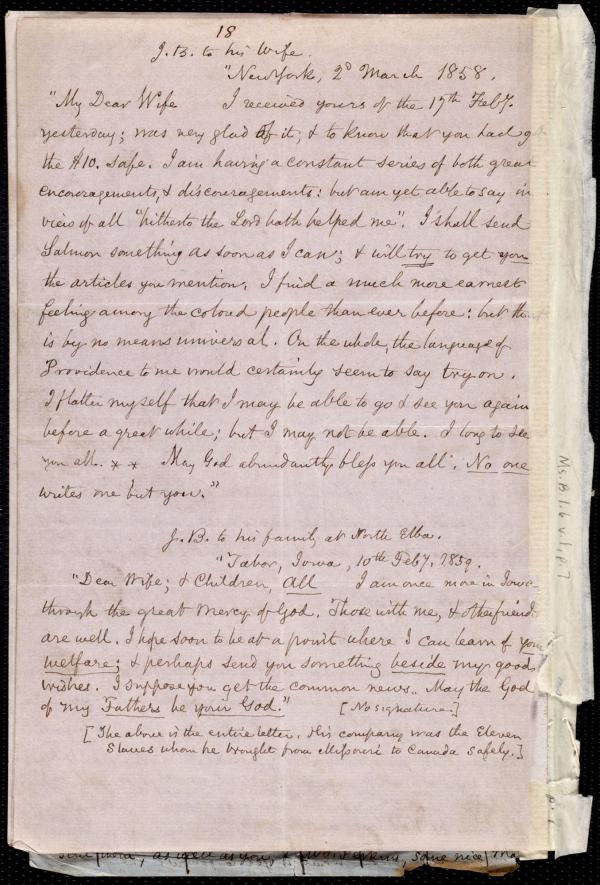 18
J.B. to his Wife.
"New York, 2d March 1858.
"My Dear Wife I received yours of the 17th Feby.
yesterday; was very glad of it, & to know that you had got
the $10. safe. I am having a constant series of both great
encouragements, & discouragements: but am yet able to say in
view of all "hitherto the Lord hath helped me". I shall send
Salmon something as soon as I can; & will try to get you
the articles you mention. I find a much more earnest
feeling among the colored people than ever before: but that
is by no means universal. On the whole, the language of
Providence to me would certainly seem to say try on.
I flatter myself that I may be able to go & see you again
before a great while; but I may not be able. I long to see
you all. * * May God abundantly bless you all. No one
writes me but you."
J.B. to his family at North Elba.
"Tabor, Iowa, 10th Feby. 1859.
"Dear Wife; & Children, All I am once more in Iowa
through the great mercy of God. Those with me, & other friends
are well. I hope soon to be at a point where I can learn of your
welfare; & perhaps send you something beside my good
wishes. I suppose you get the common news.. May the God
of my Fathers be your God." [No signature.]
[The above is the entire letter. His company was the Eleven
Slaves whom he brought from Missouri to Canada safely.]
Ms. B 1.6 v.1, p 7
p. 1
as well as you, some nice